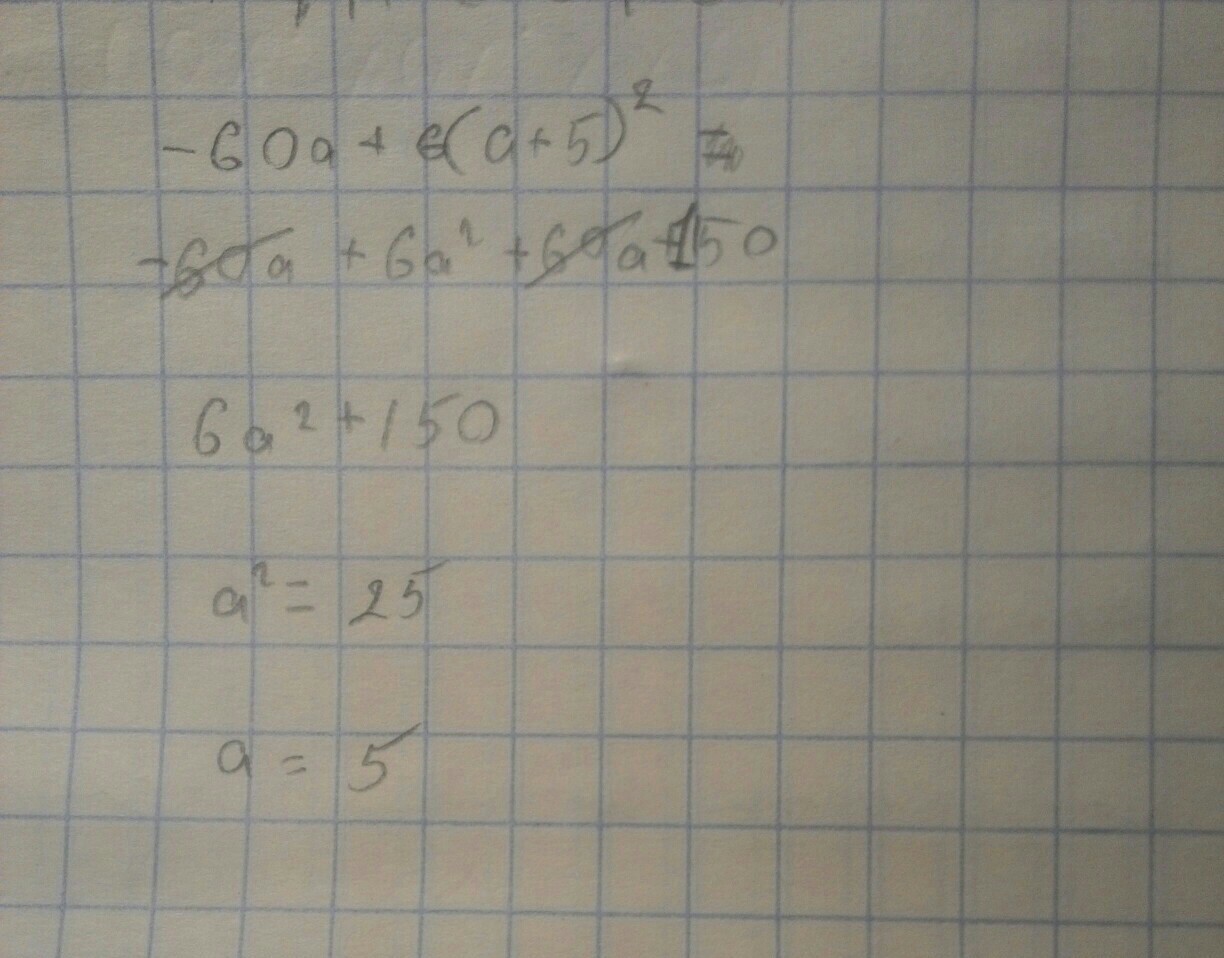 -60a + 6(a+5)²
-60a + 6a² + 60a + 150
6a² + 150
a² = 25
a = 5